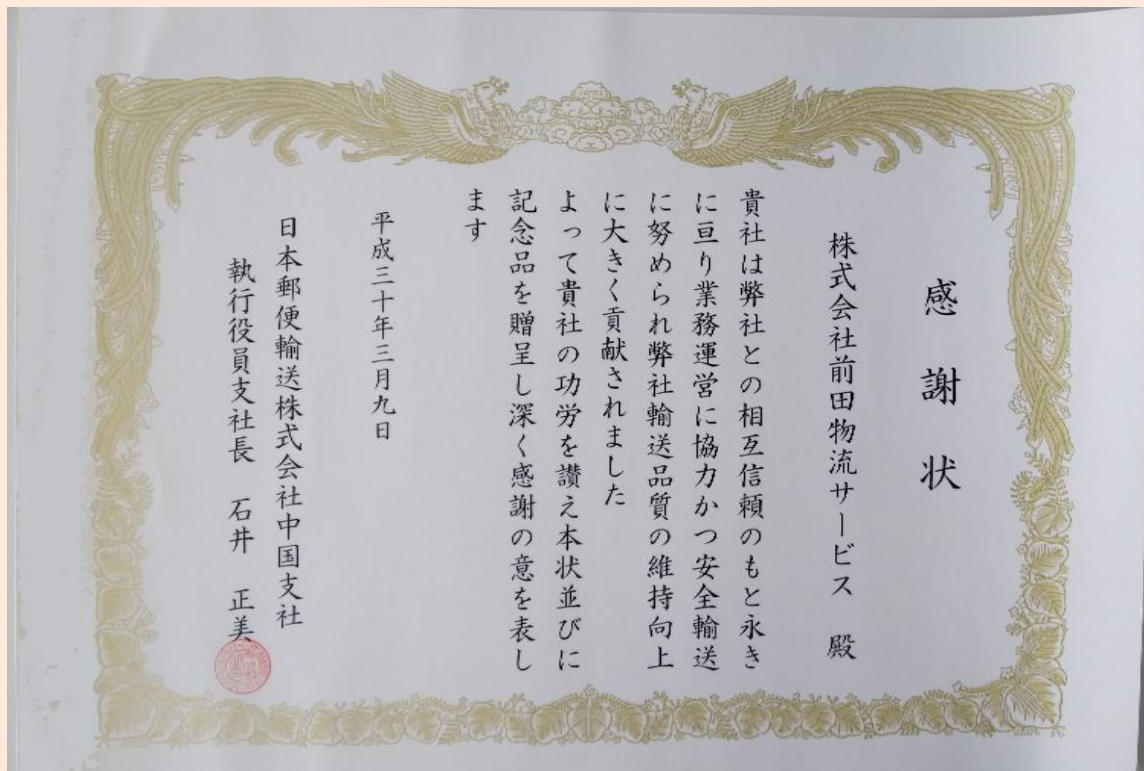 感謝状
株式会社前田物流サービス 殿
貴社は弊社との相互信頼のもと永き
に亘り業務運営に協力かつ安全輸送
に努められ弊社輸送品質の維持向上
に大きく貢献されました
よって貴社の功労を讃え本状並びに
記念品を贈呈し深く感謝の意を表し
ます
平成三十年三月九日
日本郵便輸送株式会社中国支社
執行役員支社長 石井 正美